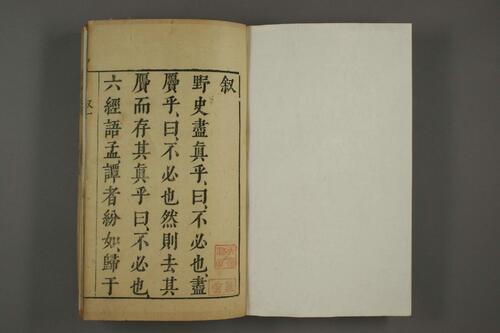 叙
野史盡真乎、曰、不必也、盡
贗乎、曰、不必也然則去其
贗而存其真乎曰、不必也
六經語孟、譚者紛如、歸于
叙一